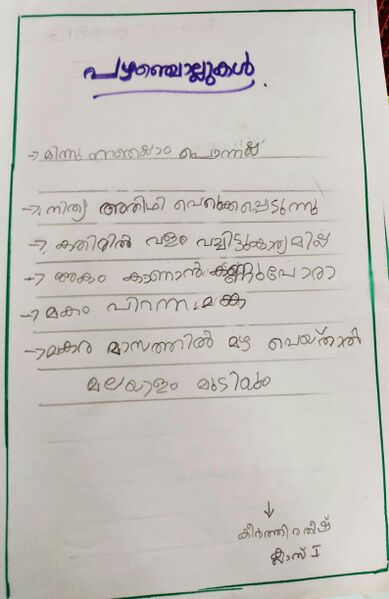 പഴഞ്ചൊല്ലുകൾ
→ മിന്നുന്നതെല്ലാം പൊന്നല്ല
→ നിത്യ അതിഥി വെറുക്കപ്പെടുന്നു
→ കതിരിൽ വളം വച്ചിട്ടുകാര്യമില്ല
→ അകം കാണാൻ കണ്ണുപോരാ
→ മകം പിറന്ന മങ്ക
→ മകര മാസത്തിൽ മഴ പെയ്താൽ
മലയാളം മുടിയും
↓
കീർത്തി രതീഷ്
ക്ലാസ് I